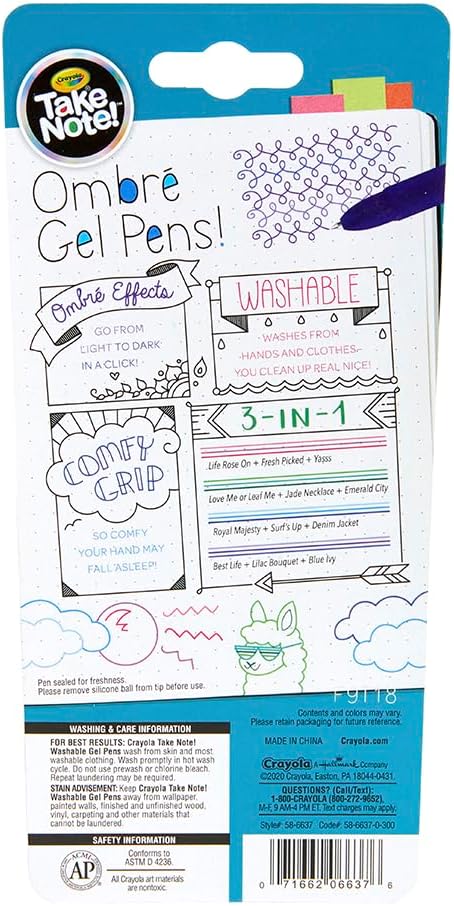 Crayola
Take
Note!™
Ombré
Gel Pens!
Ombré Effects
GO FROM
LIGHT TO DARK
IN A CLICK!
WASHABLE
WASHES FROM
HANDS AND CLOTHES.
YOU CLEAN UP REAL NICE!
COMFY
GRIP
SO COMFY
YOUR HAND MAY
FALL ASLEEP!
3-IN-1
Life Rose On + Fresh Picked + Yasss
Love Me or Leaf Me + Jade Necklace + Emerald City
Royal Majesty + Surf's Up + Denim Jacket
Best Life + Lilac Bouquet + Blue Ivy
Pen sealed for freshness.
Please remove silicone ball from tip before use.
F9118
Contents and colors may vary.
Please retain packaging for future reference.
WASHING & CARE INFORMATION
FOR BEST RESULTS: Crayola Take Note!
Washable Gel Pens wash from skin and most
washable clothing. Wash promptly in hot wash
cycle. Do not use prewash or chlorine bleach.
Repeat laundering may be required.
STAIN ADVISEMENT: Keep Crayola Take Note!
Washable Gel Pens away from wallpaper,
painted walls, finished and unfinished wood,
vinyl, carpeting and other materials that
cannot be laundered.
SAFETY INFORMATION
ACMI
AP
Conforms to
ASTM D 4236.
All Crayola art materials
are nontoxic.
MADE IN CHINA Crayola.com
Crayola A Hallmark Company
©2020 Crayola, Easton, PA 18044-0431.
QUESTIONS? (Call/Text)
1-800-CRAYOLA (800-272-9652),
M-F, 9 AM-4 PM ET. Text charges may apply.
Style#: 58-6637 Code#: 58-6637-0-300
0 71662 06637 6